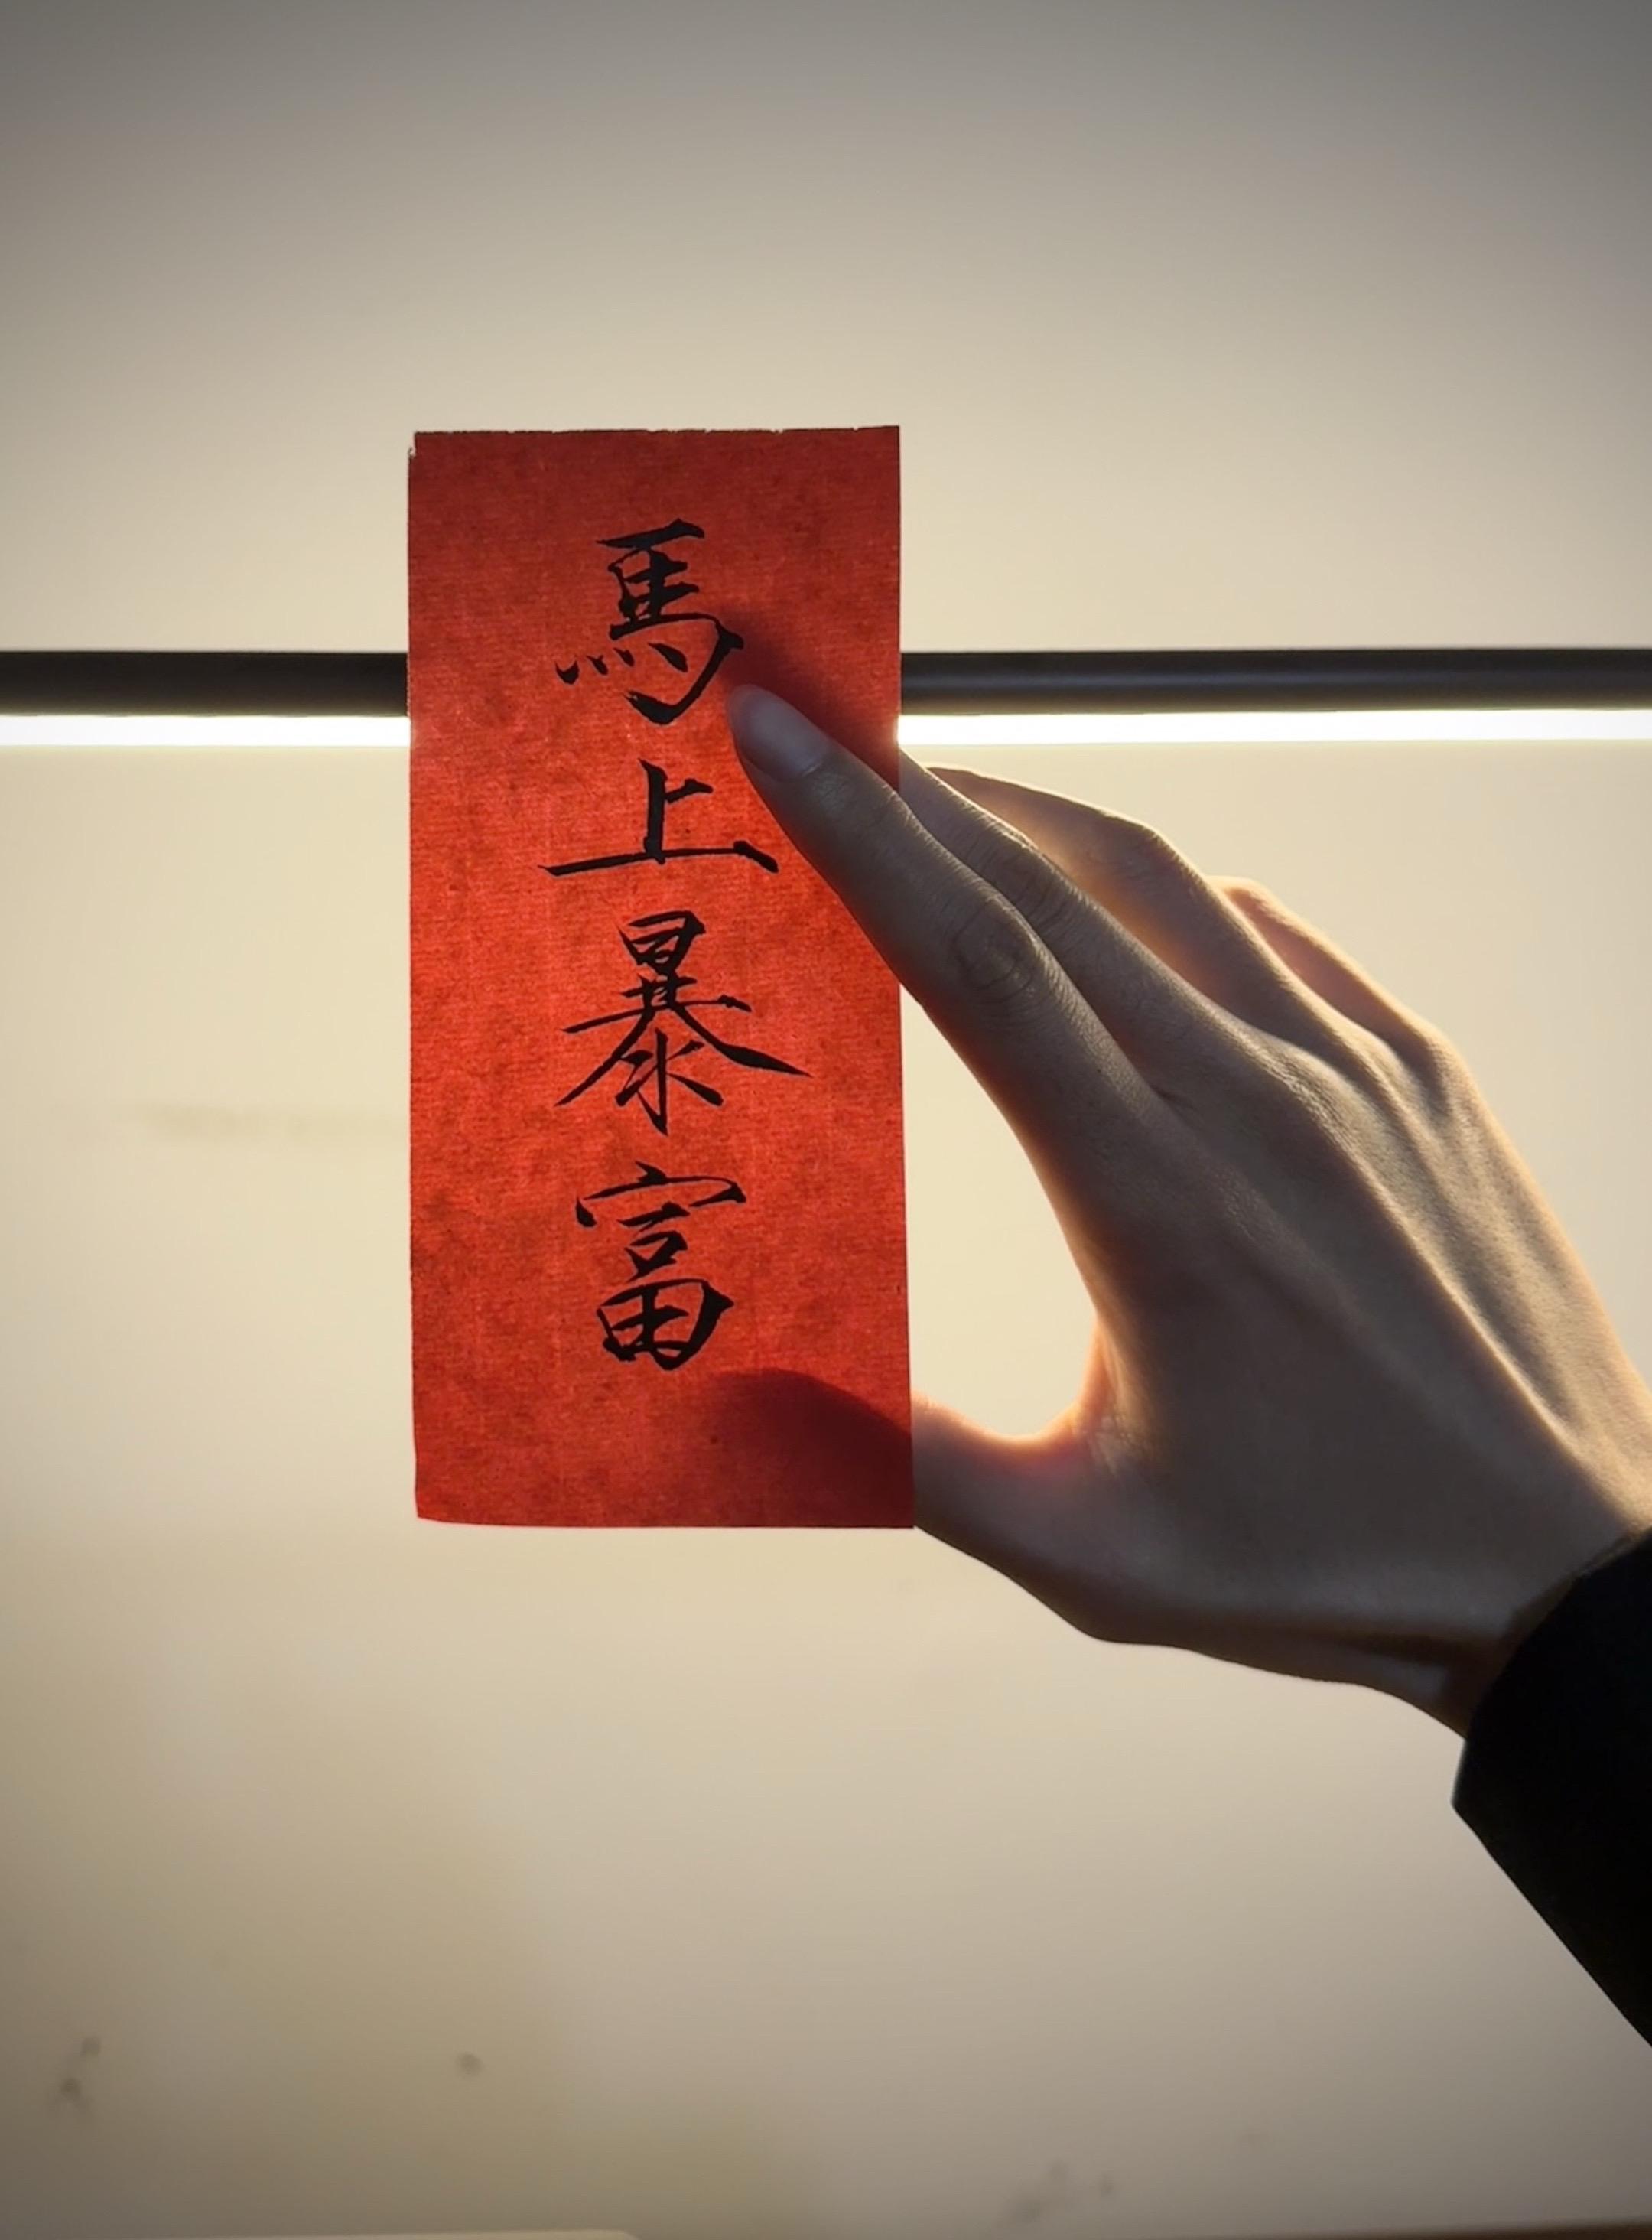 馬上暴富